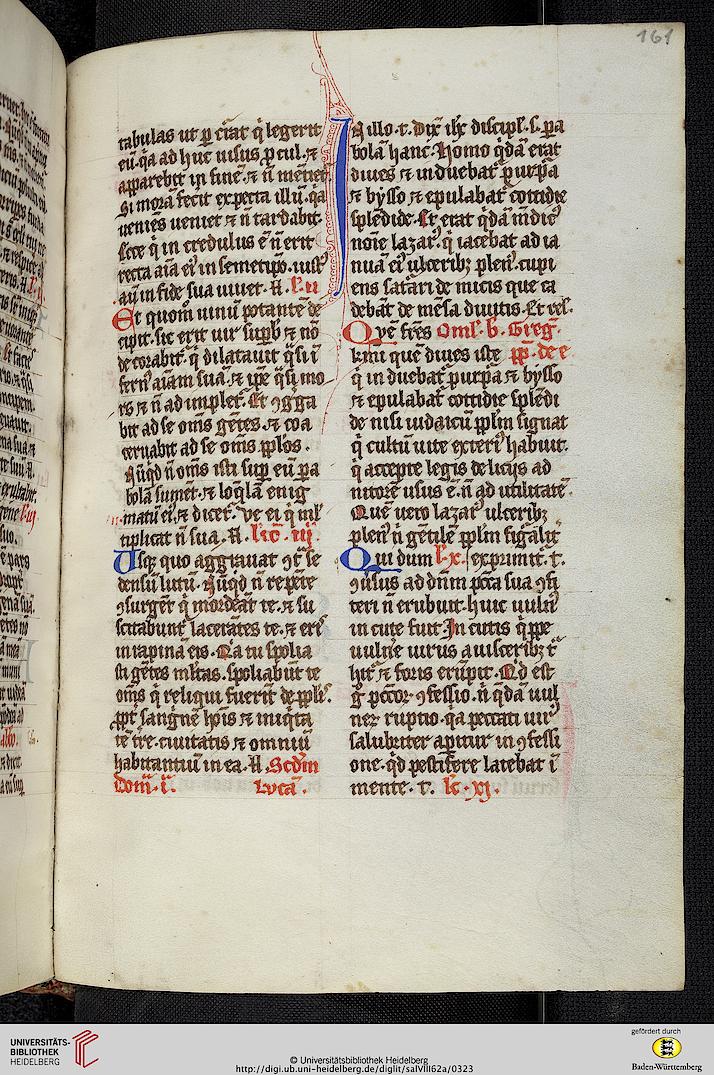 161
tabulas ut p̄ c̄rat q̇ legerit
eū. q̇a ad huc uisus p̄cul. ⁊
apparebit in finē. ⁊ n̄ mēciet᷑
Si morā fecit expecta illū. q̇a
ueniēs ueniet ⁊ n̄ tardabit.
Ecce q̇ in credulus ē n̄ erit
recta aīa ei᷒ in semetip̄o. iust᷒
aū in fide sua uiuet. A. l. ii
Et quom̄ uinū potantē de
cipit. sic erit uir sup̄b᷒ ⁊ nō
decorabit᷑. q̇ dilatauit q̇si ī
fern᷒ aīam suā. ⁊ ip̄e q̇si mo
rs ⁊ n̄ ad implet᷑. Et ꝯgga
bit ad se om̄s gētes. ⁊ coa
ceruabit ad se om̄s pp̄los.
Nūqd n̄ om̄s isti sup̄ eū pa
bolā sumēt. ⁊ loq̄lā enig
matū ei᷒. ⁊ dicet᷑. Ve ei q̇ ml᷑
tiplicat n̄ sua. A. lic̄. iij
Usq̨ quo aggrauat ꝯt᷑ se
densū lutū. Nūqd n̄ repēte
ꝯsurgēt q̇ mordeāt te. ⁊ su
scitabunt᷑ lacerātes te. ⁊ er᷒
in rapinā eis. Q̇a tu spolia
sti gētes ml᷑tas. spoliabūt te
om̄s q̇ reliqui fuerīt de pp̄lis.
pp̄t᷑ sanguinē hoīs ⁊ iniq̇ta
tē t᷑re. ciuitatis ⁊ omniū
habitantiū in ea. A. Scdm
Dom̄. i. Lucā.
In illo. t. Dix᷑ ih̄c discipl᷒. s. pa
bolā hanc. Homo q̇dā erat
diues ⁊ induebat᷑ purp̄a
⁊ bysso ⁊ epulabat᷑ cottidie
splēdide. Et erat q̇dā mēdic᷒
noīe lazar᷒. q̇ iacebat ad ia
nuā ei᷒ ulcerib᷒ plen᷒. cupi
ens saturari de micis que ca
debāt de mēsa diuitis. Et rel᷒.
Quē fr̄es Oml᷒. b. Greg᷒.
km̄i quē diues iste pp̄. de e
q̇ induebat᷑ purp̄a ⁊ bysso
⁊ epulabat᷑ cottidie splēdi
de nisi iudaicū pp̄lm signat
q̇ cultū uite exteri᷒ habuit.
q̇ accepte legis delicijs ad
nitorē usus ē. n̄ ad utilitatē.
Quē uero lazar᷒ ulcerib᷒
plen᷒ n̄ gētilē pp̄lm figālit᷑
Qui dum l. x. exprimit. t.
ꝯuersus ad dn̄m pcc̄a sua ꝯfi
teri n̄ erubuit. huic uuln᷒
in cute fuit. In cutis q̇ppe
uulnē uirus a uisceribz t᷑
hit᷑ ⁊ foris erūpit. Qd est
g̊ pccōr ꝯfessio. n̄ q̇dā uul
ner᷒ ruptio. q̇a peccati uir᷒
salubriter apitur in ꝯfessi
one. qd pestifere latebat ī
mente. T. lc̄. xj.
UNIVERSITÄTS-
BIBLIOTHEK
HEIDELBERG
© Universitätsbibliothek Heidelberg
http://digi.ub.uni-heidelberg.de/diglit/salVIII62a/0323
gefördert durch
Baden-Württemberg